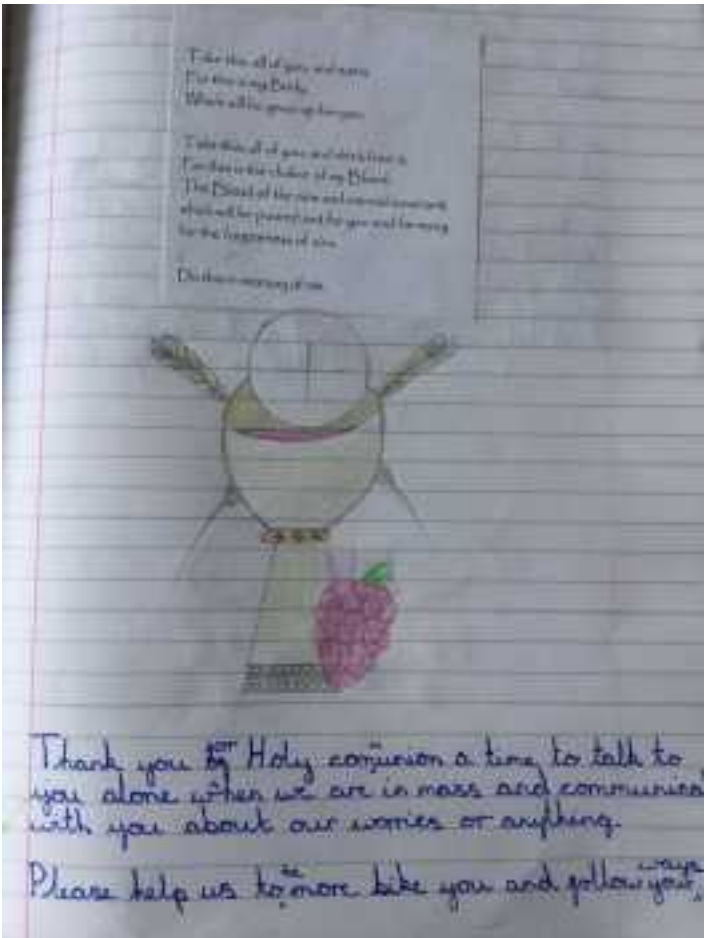 Take this all of you and eat it
For this is my Body
Which will be given up for you
Take this all of you and drink from it
For this is the chalice of my Blood
The Blood of the new and eternal covenant
which will be poured out for you and for many
for the forgiveness of sins
Do this in memory of me
Thank you for Holy comunion a time to talk to
you alone when we are in mass and communica
with you about our worries or anything.
Please help us to be more like you and follow your ways